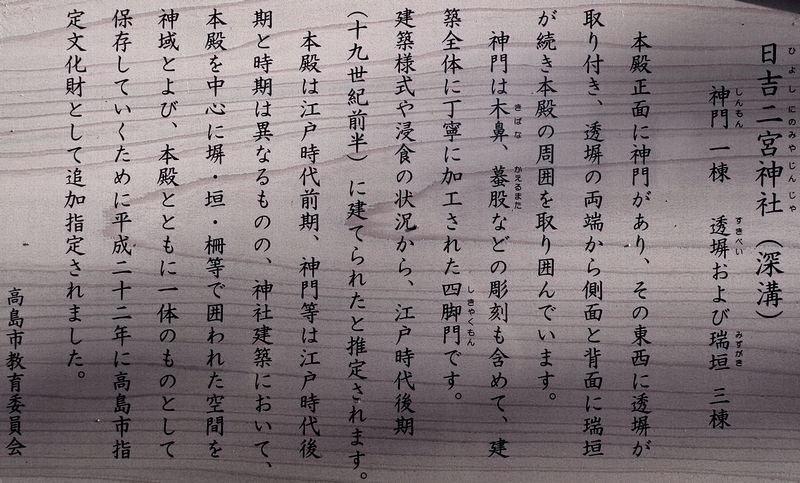 日吉二宮神社（深溝）
神門 一棟 透塀および瑞垣 三棟
本殿正面に神門があり、その東西に透塀が
取り付き、透塀の両端から側面と背面に瑞垣
が続き本殿の周囲を取り囲んでいます。
神門は木鼻、蟇股などの彫刻も含めて、建
築全体に丁寧に加工された四脚門です。
建築様式や浸食の状況から、江戸時代後期
（十九世紀前半）に建てられたと推定されます。
本殿は江戸時代前期、神門等は江戸時代後
期と時期は異なるものの、神社建築において、
本殿を中心に塀・垣・柵等で囲われた空間を
神域とよび、本殿とともに一体のものとして
保存していくために平成二十二年に高島市指
定文化財として追加指定されました。
高島市教育委員会